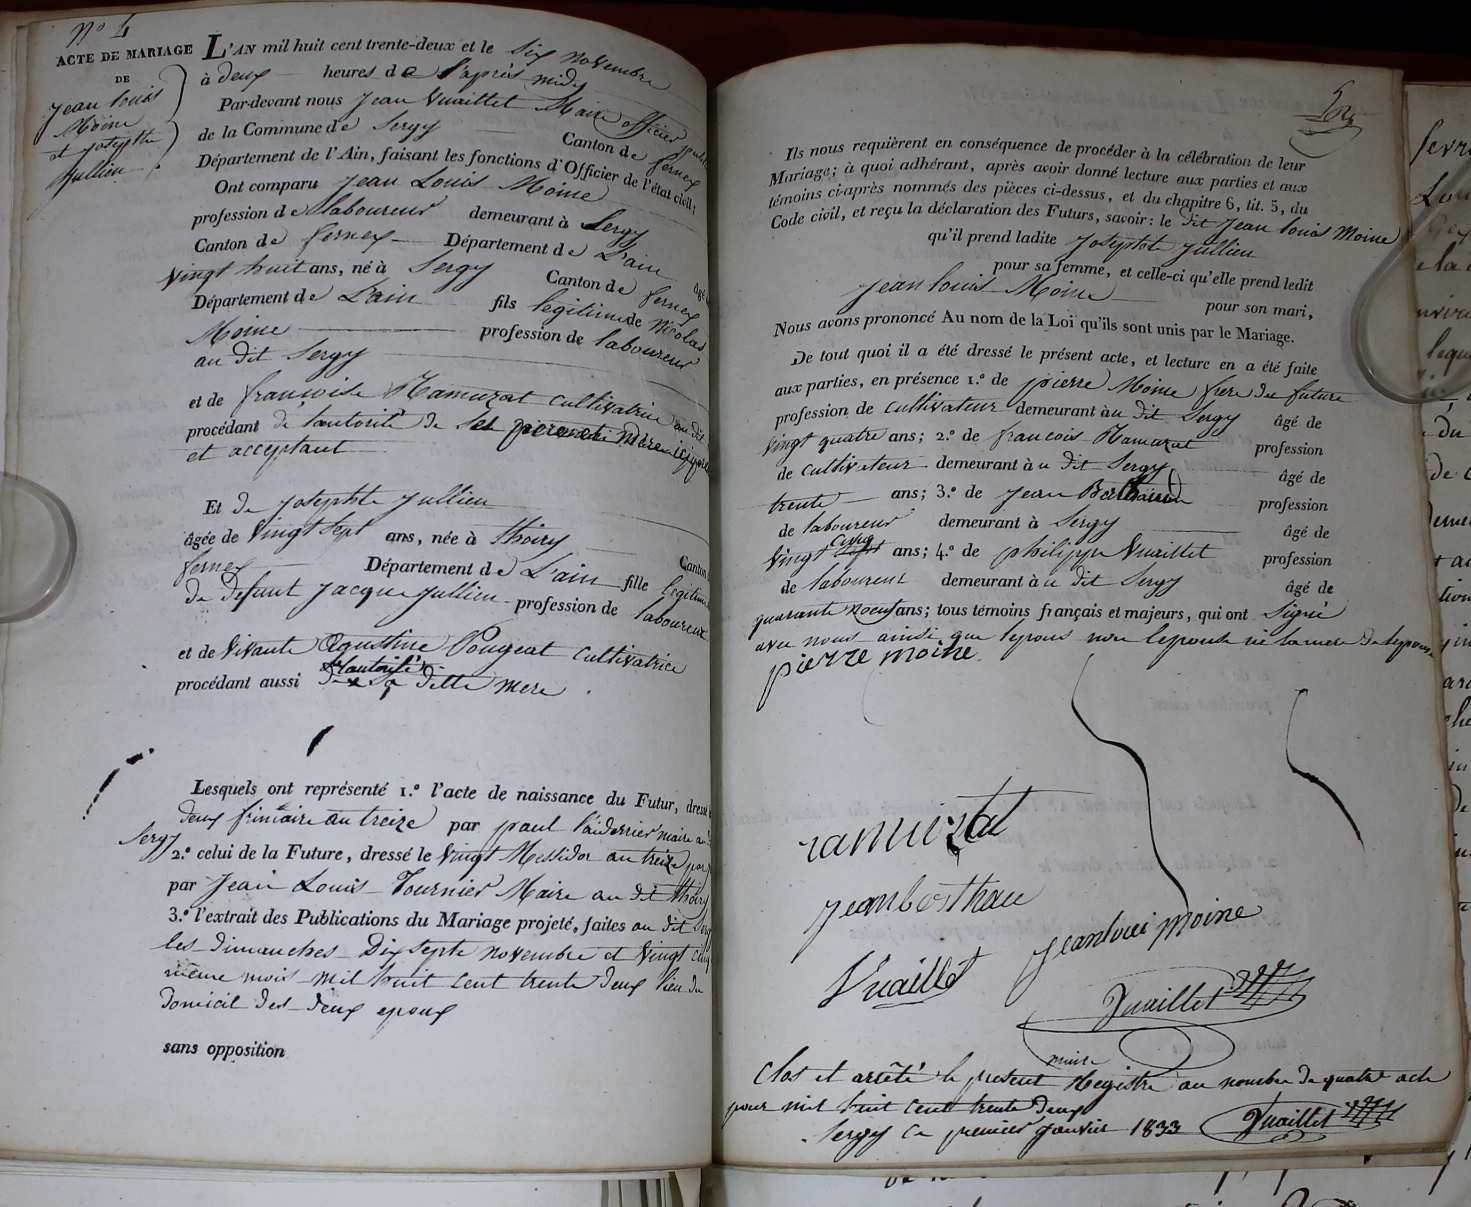 N° 4
ACTE DE MARIAGE
DE
Jean louis
Moine
et josephte
jullien
L'AN mil huit cent trente-deux et le six novembre
à deux heures de l'après midy
Par-devant nous Jean Vuaillet Maire officier public
de la Commune de Sergy Canton de fernex
Département de l'Ain, faisant les fonctions d'Officier de l'état civil;
Ont comparu Jean Louis Moine
profession de laboureur demeurant à Sergy
Canton de fernex Département de L'ain âgé
vingt huit ans, né à Sergy Canton de fernex
Département de L'ain fils legitime de Nicolas
Moine profession de laboureur
au dit Sergy
et de françoise Ramuzat cultivatrice au dit
procédant de lautorité de ses pere et mère ici
et acceptant
Et de josephte jullien
âgée de vingt sept ans, née à thoiry Canton
fernex Département de L'ain fille legitime
de defunt jacque jullien profession de laboureur
et de vivante Pougeat cultivatrice
procédant aussi de lautorité de sa ditte mere
Lesquels ont représenté 1.° l'acte de naissance du Futur, dressé
deux frimaire an treize par paul maire au
Sergy
2.° celui de la Future, dressé le vingt Messidor an treize par
par Jean Louis Tournier Maire au dit thoiry
3.° l'extrait des Publications du Mariage projeté, faites au dit Sergy
les dimanches Dix septe novembre et vingt cinq
même mois mil huit cent trente deux lieu du
domicil des deux epoux
sans opposition
Ils nous requièrent en conséquence de procéder à la célébration de leur
Mariage; à quoi adhérant, après avoir donné lecture aux parties et aux
témoins ci-après nommés des pièces ci-dessus, et du chapitre 6, tit. 5, du
Code civil, et reçu la déclaration des Futurs, savoir: le dit Jean louis Moine
qu'il prend ladite josephte jullien
pour sa femme, et celle-ci qu'elle prend ledit
jean louis Moine pour son mari,
Nous avons prononcé Au nom de la Loi qu'ils sont unis par le Mariage.
De tout quoi il a été dressé le présent acte, et lecture en a été faite
aux parties, en présence 1.° de pierre Moine frere du future
profession de cultivateur demeurant à u dit Sergy âgé de
vingt quatre ans; 2.° de francois Ramuzat profession
de cultivateur demeurant à u dit Sergy âgé de
trente ans; 3.° de jean profession
de laboureur demeurant à Sergy âgé de
vingt cinq ans; 4.° de philippe Vuaillet profession
de laboureur demeurant à u dit Sergy âgé de
quarante noeuf ans; tous témoins français et majeurs, qui ont Signé
avec nous ainsi que lepoux non lepouse ni la mere de lepouse
pierre moine
ramuzat
jeanberthau
jeanloui moine
Vuaillet
Vuaillet
maire
Clos et arrêté le present Registre au nombre de quatre acte
pour mil huit cent trente deux
Sergy ce premier janvier 1833 Vuaillet